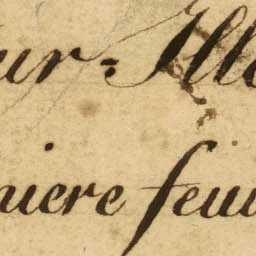 ur = Ille
niere feui